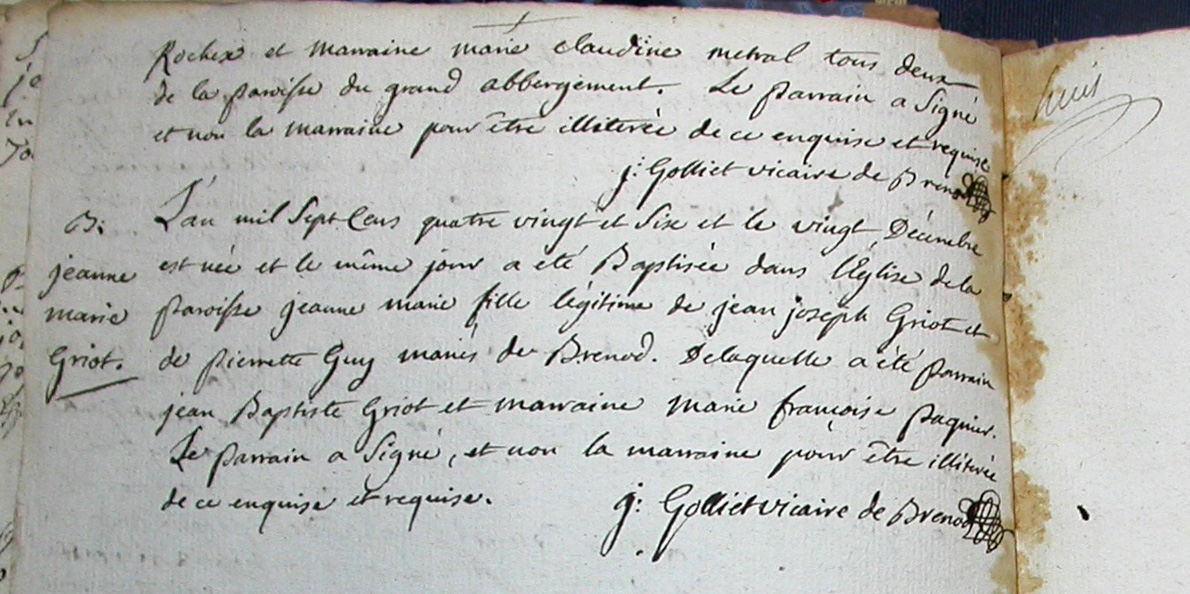 Rochex et marraine marie claudine metral tous deux
de la paroisse du grand abbergement. Le parrain a Signé
et non la marraine pour être illiterée de ce enquise et requise
j: Golliet vicaire de Brenod
L'an mil Sept Cens quatre vingt et Six et le vingt Décembre
B:
jeanne
marie
Griot.
est née et le même jour a été Baptisée dans l'Eglise de la
paroisse jeanne marie fille légitime de jean joseph Griot et
de pierrette Guy mariés de Brenod. Delaquelle a été parrain
jean Baptiste Griot et marraine marie françoise paquier.
Le parrain a Signé, et non la marraine pour être illiterée
de ce enquise et requise.
j: Golliet vicaire de Brenod